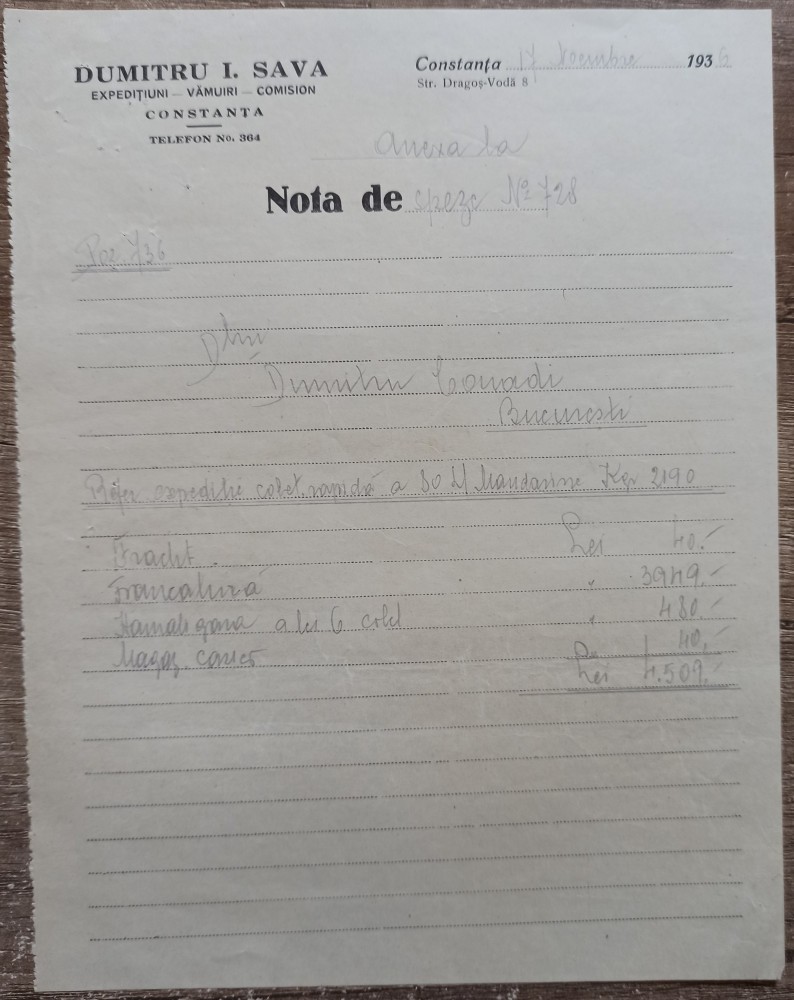 DUMITRU I. SAVA
EXPEDIȚIUNI — VĂMUIRI — COMISION
CONSTANTA
TELEFON No. 364
Constanța 17 Noembrie 1936
Str. Dragoș-Vodă 8
Anexa la
Nota de speze No 728
Poz 736
Dlui
Dumitru
București
expediție colet. rapidă a 80 Mandarine Kgr 2190
Fracht Lei 40.-
Francatură " 3949.-
gara 6 " 480.-
Magaz. 40.-
Lei 4.509.-